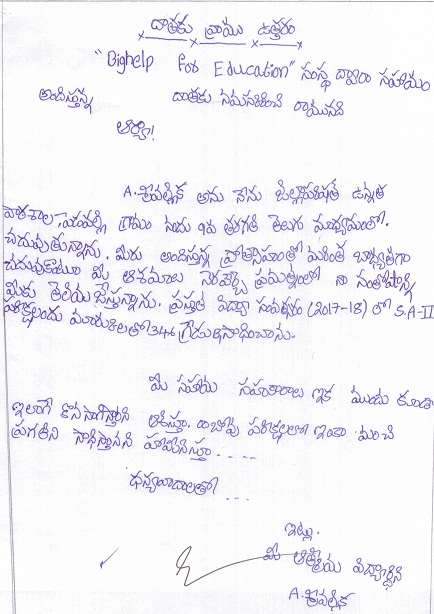 దాతకు వ్రాయు ఉత్తరం
"Bighelp For Education" సంస్థ ద్వారా సహాయం
అందిస్తున్న దాతకు నమస్కరించి రాయునది
ఆర్యా!
A. శ్రీవల్లిక అను నేను జిల్లాపరిషత్ ఉన్నత
పాఠశాల, గ్రామం నందు 9వ తరగతి తెలుగు మాధ్యమంలో.
చదువుతున్నాను. మీరు అందిస్తున్న ప్రోత్సాహంతో మరింత బాధ్యతగా
చదువుకుంటూ మీ ఆశయాలు నెరవేర్చే ప్రయత్నంలో నా సంతోషాన్ని
మీకు తెలియజేస్తున్నాను. ప్రస్తుత విద్యా సంవత్సరం (2017-18) లో S.A-II
పరీక్షలందు మారుకులతో 346 గ్రేడు సాధించాను.
మీ సహాయ సహకారాలు ఇక ముందు కూడా
ఇలాగే కొనసాగిస్తారని ఆశిస్తూ. రాబోవు పరీక్షలలో ఇంకా మంచి
ప్రగతిని సాధిస్తానని హామీనిస్తూ....
ధన్యవాదాలతో...
ఇట్లు.
మీ ఆత్మీయ విద్యార్థిని
A. శ్రీవల్లిక